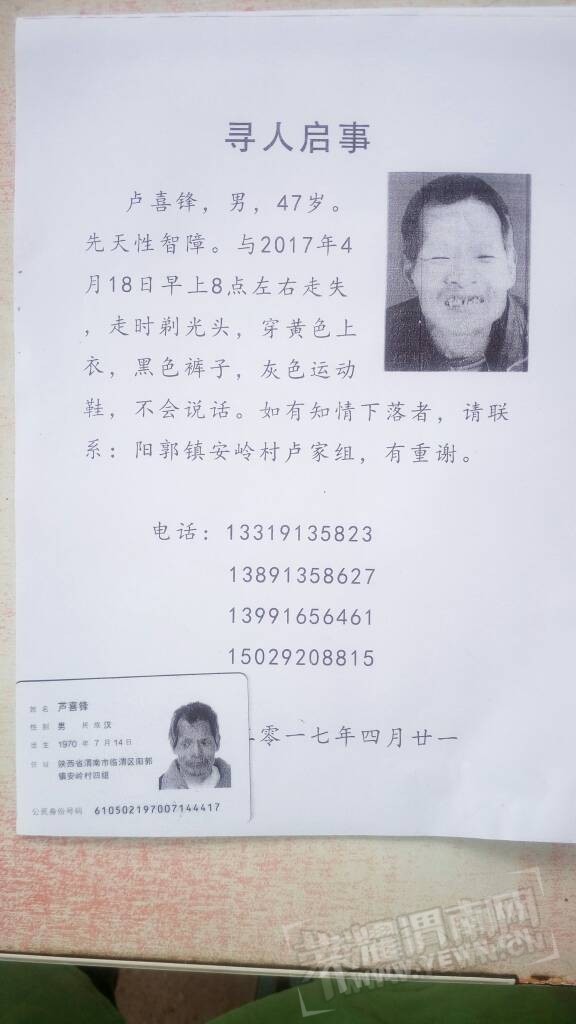 寻人启事
卢喜锋，男，47岁。
先天性智障。与2017年4
月18日早上8点左右走失
，走时剃光头，穿黄色上
衣，黑色裤子，灰色运动
鞋，不会说话。如有知情下落者，请联
系：阳郭镇安岭村卢家组，有重谢。
电话：13319135823
13891358627
13991656461
15029208815
零一七年四月廿一
姓名 芦喜锋
性别 男 民族 汉
出生 1970 年 7 月 14 日
住址 陕西省渭南市临渭区阳郭
镇安岭村四组
公民身份号码 610502197007144417
荣耀渭南网
WWW.YEWN.CN